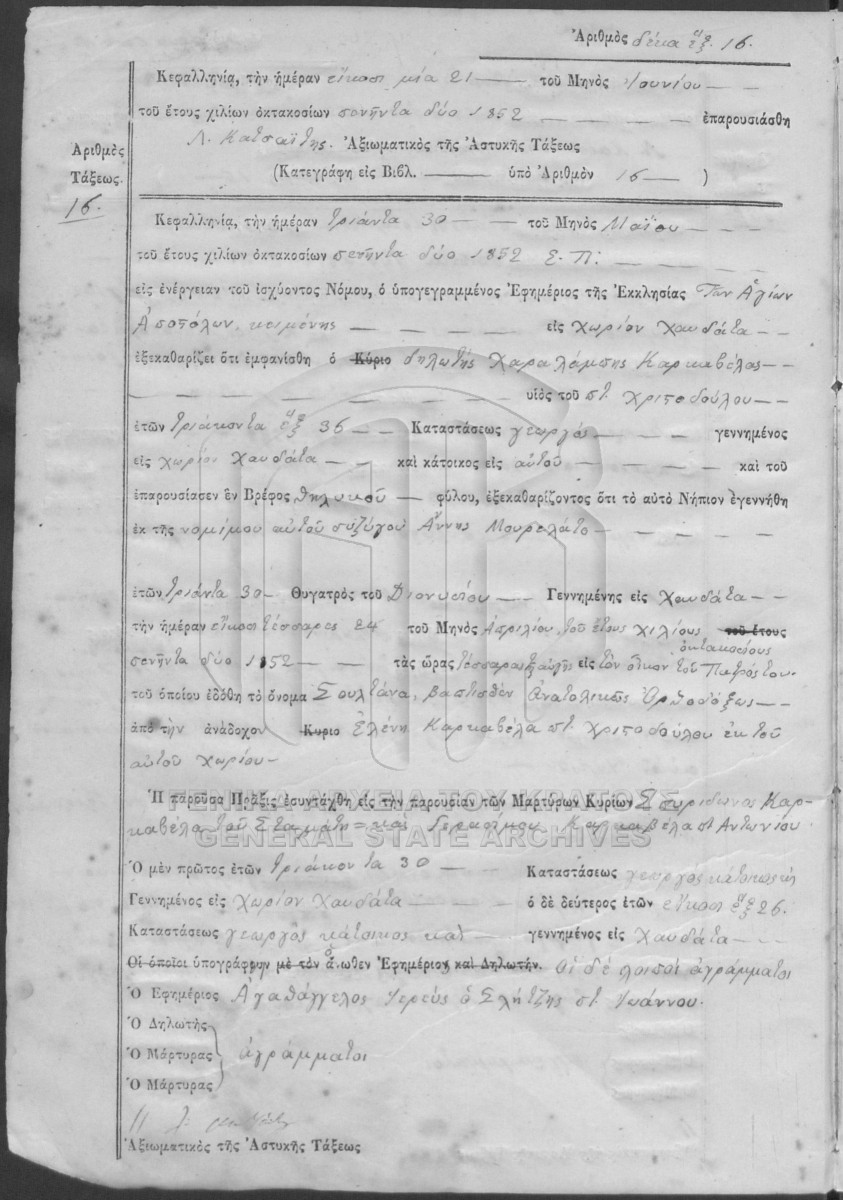 Ἀριθμὸς δέκα ἕξ. 16.
Κεφαλληνία, τὴν ἡμέραν εἴκοσι μία 21 — τοῦ Μηνὸς Ἰουνίου - -
τοῦ ἔτους χιλίων ὀκτακοσίων πενῆντα δύο 1852 - - - - ἐπαρουσιάσθη
Λ. Κατσαΐτης. Ἀξιωματικὸς τῆς Ἀστυκῆς Τάξεως
(Κατεγράφη εἰς Βιβλ. — ὑπὸ Ἀριθμὸν 16 — )
Ἀριθμὸς
Τάξεως.
16.
Κεφαλληνία, τὴν ἡμέραν τριάντα 30 - - τοῦ Μηνὸς Μαΐου - - -
τοῦ ἔτους χιλίων ὀκτακοσίων πενῆντα δύο 1852 Ε. Π: - - - -
εἰς ἐνέργειαν τοῦ ἰσχύοντος Νόμου, ὁ ὑπογεγραμμένος Ἐφημέριος τῆς Ἐκκλησίας Τῶν Ἁγίων
Ἀποστόλων - - - - εἰς χωρίον Χαυδάτα - -
ἐξεκαθαρίζει ὅτι ἐμφανίσθη ὁ Κύριο δηλωτής Χαραλάμπης Καρκαβέλας - -
- - - - υἱὸς τοῦ ποτ. Χριστοδούλου - -
ἐτῶν τριάκοντα ἕξ 36 - - Καταστάσεως γεωργός - - - γεννημένος
εἰς χωρίον Χαυδάτα - - καὶ κάτοικος εἰς αὐτοῦ - - - - καὶ τοῦ
ἐπαρουσίασεν ἓν Βρέφος θηλυκοῦ - φύλου, ἐξεκαθαρίζοντος ὅτι τὸ αὐτὸ Νήπιον ἐγεννήθη
ἐκ τῆς νομίμου αὐτοῦ συζύγου Ἄννης Μουρελάτο - - - -
ἐτῶν τριάντα 30 - Θυγατρὸς τοῦ Διονυσίου - - Γεννημένης εἰς Χαυδάτα - -
τὴν ἡμέραν εἴκοσι τέσσαρες 24 τοῦ Μηνὸς Ἀπριλίου, τοῦ ἔτους χιλίους τοῦ ἔτους
ὀκτακοσίους
πενῆντα δύο 1852 - - - τὰς ὥρας τέσσαρας τῆς αὐγῆς εἰς τὸν οἶκον τοῦ Πατρός του.
τοῦ ὁποίου ἐδόθη τὸ ὄνομα Σουλτάνα, βαπτισθὲν Ἀνατολικῶς Ὀρθοδόξως - -
ἀπὸ τὴν ἀνάδοχον Κυριο Ἑλένη Καρκαβέλα ποτ. Χριστοδούλου ἐκ τοῦ
αὐτοῦ χωρίου -
Ἡ παροῦσα Πρᾶξις ἐσυντάχθη εἰς τὴν παρουσίαν τῶν Μαρτύρων Κυρίων Σπυρίδωνος Καρ-
καβέλα τοῦ Σταμάτη = καὶ Γερασίμου Καρκαβέλα ποτ. Ἀντωνίου
ΓΕΝΙΚΑ ΑΡΧΕΙΑ ΤΟΥ ΚΡΑΤΟΥΣ
GENERAL STATE ARCHIVES
Ὁ μὲν πρῶτος ἐτῶν τριάκοντα 30 - - Καταστάσεως γεωργὸς κάτοικος καὶ
Γεννημένος εἰς χωρίον Χαυδάτα - - - - ὁ δὲ δεύτερος ἐτῶν εἴκοσι ἕξ 26.
Καταστάσεως γεωργὸς κάτοικος καὶ - γεννημένος εἰς Χαυδάτα - -
Οἱ ὁποῖοι ὑπογράφουν μὲ τὸν ἄνωθεν Ἐφημέριον καὶ Δηλωτήν. Οἱ δὲ λοιποὶ ἀγράμματοι
Ὁ Ἐφημέριος Ἀγαθάγγελος Ἱερεύς ὁ ποτ. Ἰωάννου.
Ὁ Δηλωτὴς
Ὁ Μάρτυρας ἀγράμματοι
Ὁ Μάρτυρας
Ἀξιωματικὸς τῆς Ἀστυκῆς Τάξεως